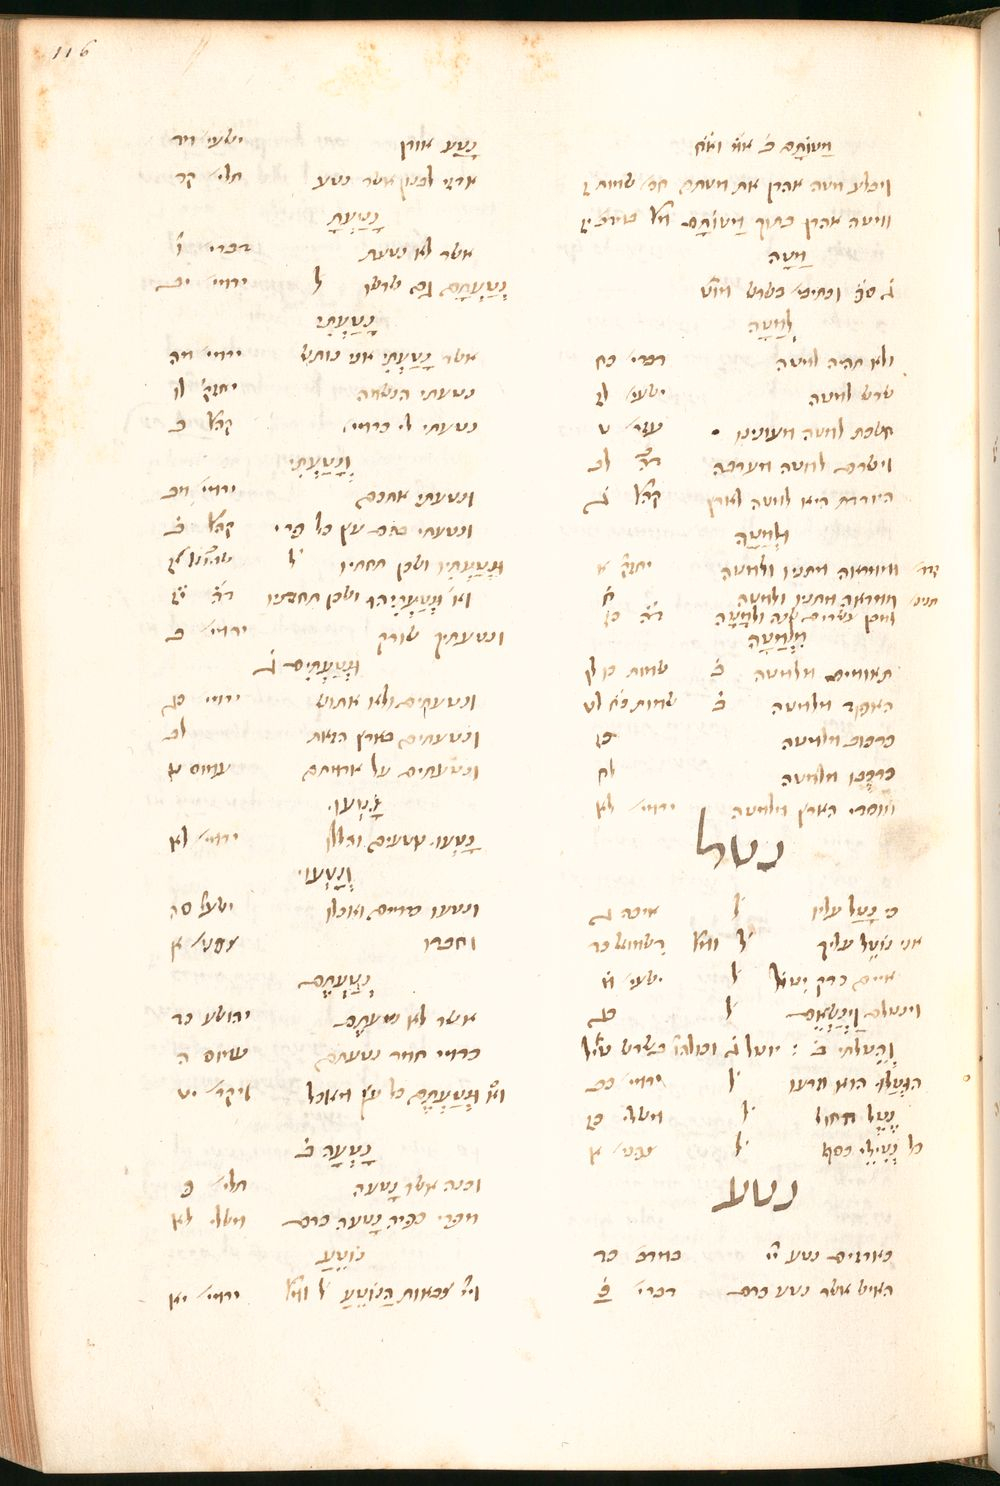 116
מַטּוֹתָם ב׳ א׳ וא׳
ויבלע מטה אהרן את מטתם שמות ז
ומטה אהרן בתוך מַטּוֹתָם במדב׳ יז
מַטָּה
ג׳ סי׳ וכתיבי׳ בשרש
לְמַטָּה
ולא תהיה למטה דברי׳ כח
שרש למטה ישעי׳ לז
חשכת למטה מעונינו עזר׳ ט
וישרם למטה מערבה ד״ה לב
היורדת היא למטה לארץ קהל׳ ג
וּלְמַטָּה
וממראה מתניו ולמטה יחזק׳ א
ממראה מתניו ולמטה ח
למבן עשרים שנה ולמַטָּה ד״ה כז
מִלְּמַטָּה
תאומים מלמטה ב׳ שמות כו לו
האפוד מלמטה ב׳ שמות כח לט
כרכוב מלמטה כז
כרכֻּבּו מלמטה לח
מוסדי הארץ מלמטה ירמי׳ לא
נטל
כי נָטַל עליו ל׳ איכה ג
אני נוֹטֵל עליך ל׳ ומל׳ דשמואל כד
איים כדק יִטּוֹל ל׳ ישעי׳ מ
וינטלם וַיְנַשְּׂאֵם ל׳ סג
וְהֵטַלְתִּי ב׳
הֻטֲלוּ הוא וזרעו ל׳ ירמי׳ כב
נֵטֶל החול ל׳ משלי כז
כל נְטִילֵי כסף ל׳ צפני׳ א
נטע
כאהלים נטע יי במדב׳ כד
האיש אשר נטע כרם דברי׳ כ
נָטַע אורן ישעי׳ מד
ארזי לבנון אשר נטע תלי׳ קד
נָטַעְתָּ
אשר לא נטעת דברי׳ ו
נְטַעְתָּם גם שרשו ל׳ ירמי׳ יב
נָטַעְתִּי
אשר נָטַעְתִּי אני נותש ירמי׳ מה
נטעתי הנשמה יחזק׳ לו
נטעתי לי כרמי׳ קהל׳ ב
וְנָטַעְתִּי
ונטעתי אתכם ירמי׳ מב
ונטעתי בהם עץ כל פרי קהל׳ ב
וּנְטַעְתִּיו ושכן תחתיו ל׳ שמואל ז
וא׳ וּנְטַעְתִּיהוּ ושכן תחתיו ד״ה יז
ונטעתיך שורק ירמי׳ ב
וּנְטַעְתִּים ג׳
ונטעתים ולא אתוש ירמי׳ כד
ונטעתים בארץ הזאת לב
ונטעתים על אדמתם עמוס ט
נָטְעוּ
נָטְעוּ נוטעים וחללו ירמי׳ לא
וְנָטְעוּ
ונטעו כרמים ואכלו ישעי׳ סה
וחברו צפני׳ א
נְטַעְתֶּם
אשר לא נטעתם יהושע כד
כרמי חמד נטעתם עמוס ה
וא׳ וּנְטַעְתֶּם כל עץ מאכל ויקר׳ יט
נָטְעָה ב׳
וכנה אשר נָטעה תלי׳ פ
מפרי כפיה נָטעה כרם משלי לא
נוֹטֵעַ
ויי׳ צבאות הַנּוֹטֵעַ ל׳ ומל׳ ירמי׳ יא